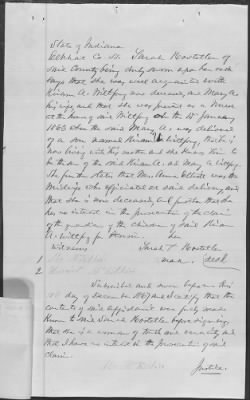 State of Indiana
Elkhart Co SS. Sarah Hostetler of
said County being duly sworn upon her oath
says that she was well acquainted with
Hiram A. Wittfog now deceased, and Mary A.
his wife, and that she was present as a Nurse
at the house of said Wittfog on the 15th January
1863 when the said Mary A. was delivered
of a son named Hiram Wittfog, that he is
now living with his mother and she knows him to
be the son of the said Hiram A. and Mary A. Wittfog
She further states that Mrs. Anna Elliott was the
Midwife who officiated at said delivery and
that she is now deceased, and further that she
has no interest in the prosecution of the claim
of the guardian of the children of said Hiram
A. Wittfog for Pension. her
witness Sarah + Hostetler
1 mark seal
2
Subscribed and sworn before me this
day of December 1867 and I certify that the
contents of said affidavit was fully made
known to said Sarah Hostetler before signing,
that she is a woman of truth and veracity and
that I have no interest in the prosecution of said
claim.
Justice